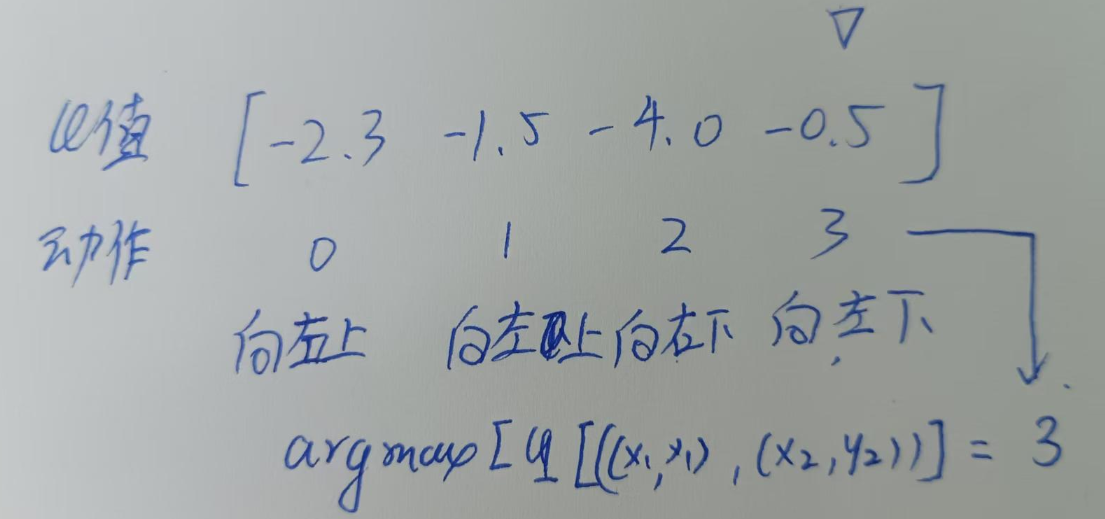 ▽
Q值 [-2.3 -1.5 -4.0 -0.5]
动作 0 1 2 3
向右上 向左上 向右下 向左下
argmax[Q[((x₁,y₁),(x₂,y₂))]=3